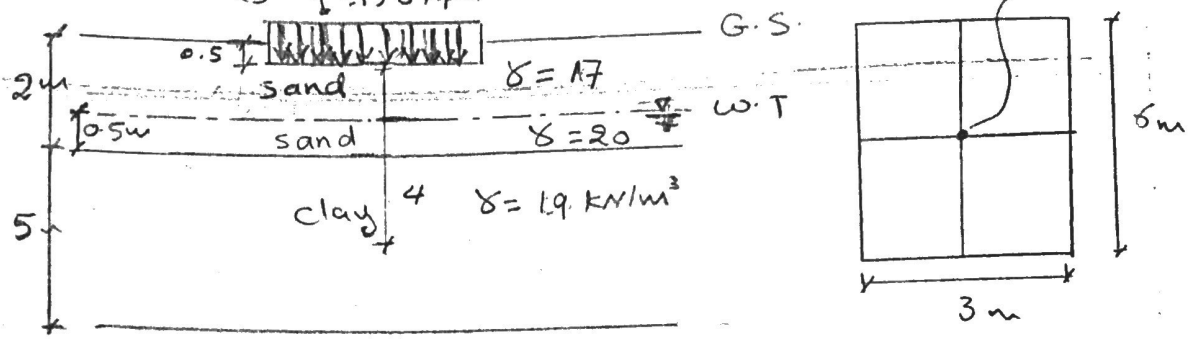 G.S.
0.5
2m
sand
γ = 17
W.T
0.5m
sand
γ = 20
clay
4
γ = 19 kN/m³
5
6m
3 m